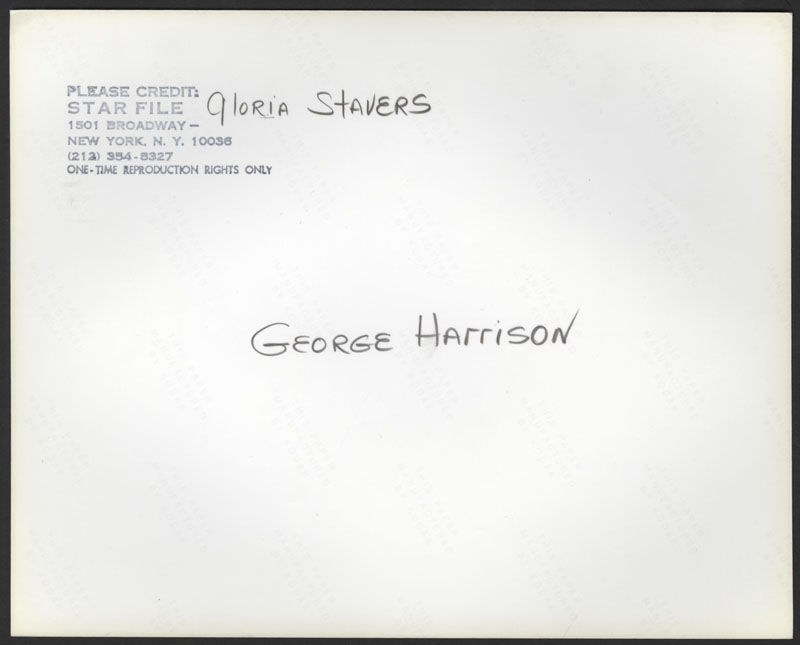 PLEASE CREDIT:
STAR FILE Gloria Stavers
1501 BROADWAY –
NEW YORK, N. Y. 10036
(212) 354-8327
ONE-TIME REPRODUCTION RIGHTS ONLY
GEORGE HARRISON
THIS PAPER
MANUFACTURED
BY KODAK